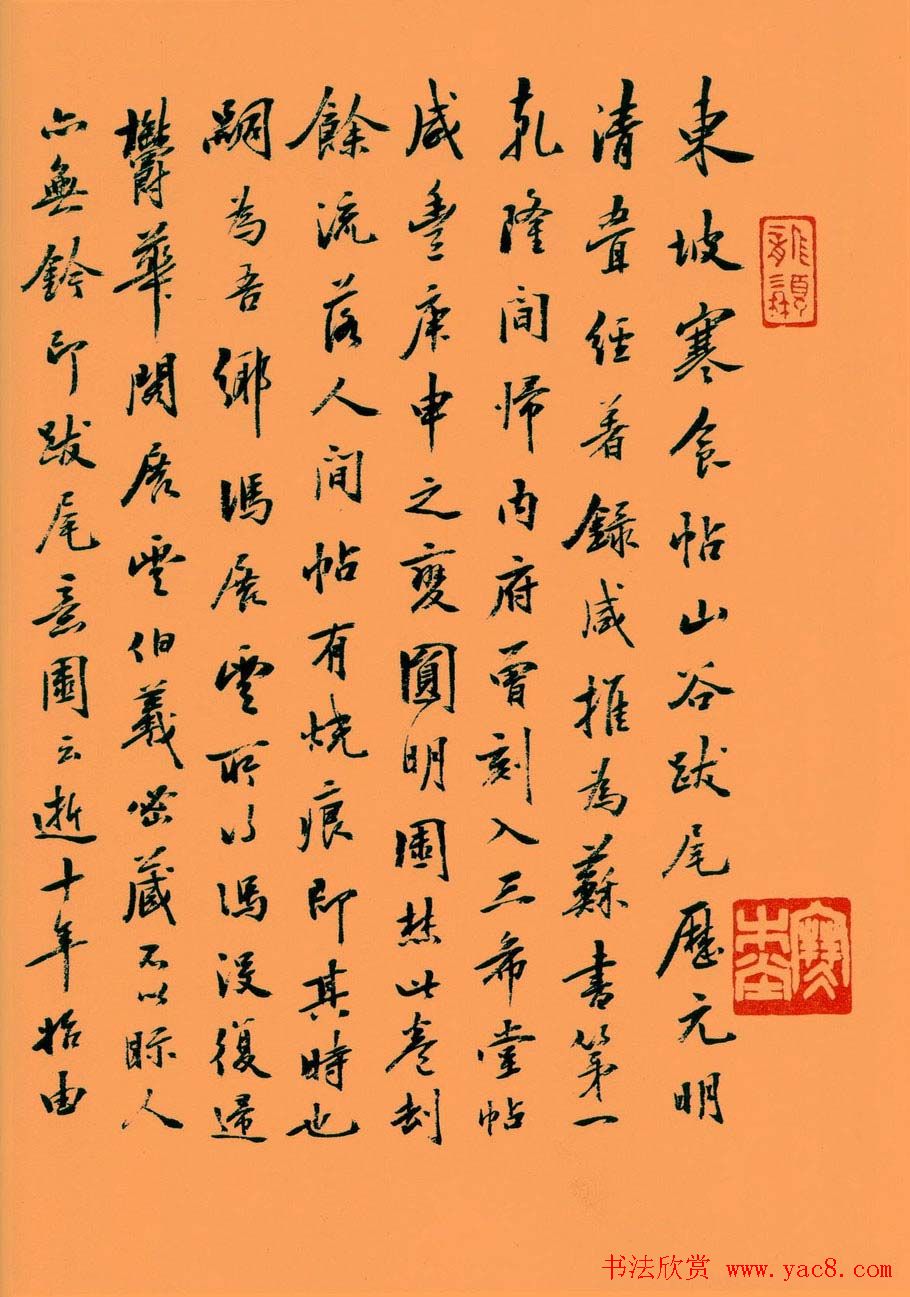 東坡寒食帖山谷跋尾歷元明
清疊經著錄咸推為蘇書第一
乾隆間歸內府曾刻入三希堂帖
咸豐庚申之變圓明園焚此卷劫
餘流落人間帖有燒痕即其時也
嗣為吾鄉馮展雲所得馮沒復歸
鬱華閣展雲伯羲密藏不以眎人
亦無鈐印跋尾意園云逝十年始由
书法欣赏 www.yac8.com